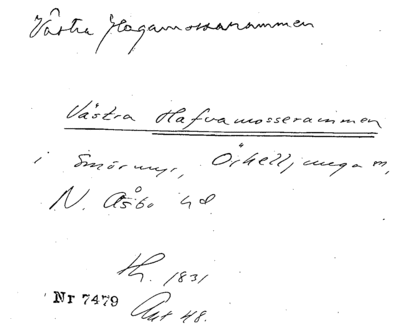 Västra Hagamossarammen
Västra Hafvamosserammen
i Smörmyr, Örkelljunga m,
N. Åsbo hd
Th. 1831
Nr 7479
Akt 48.